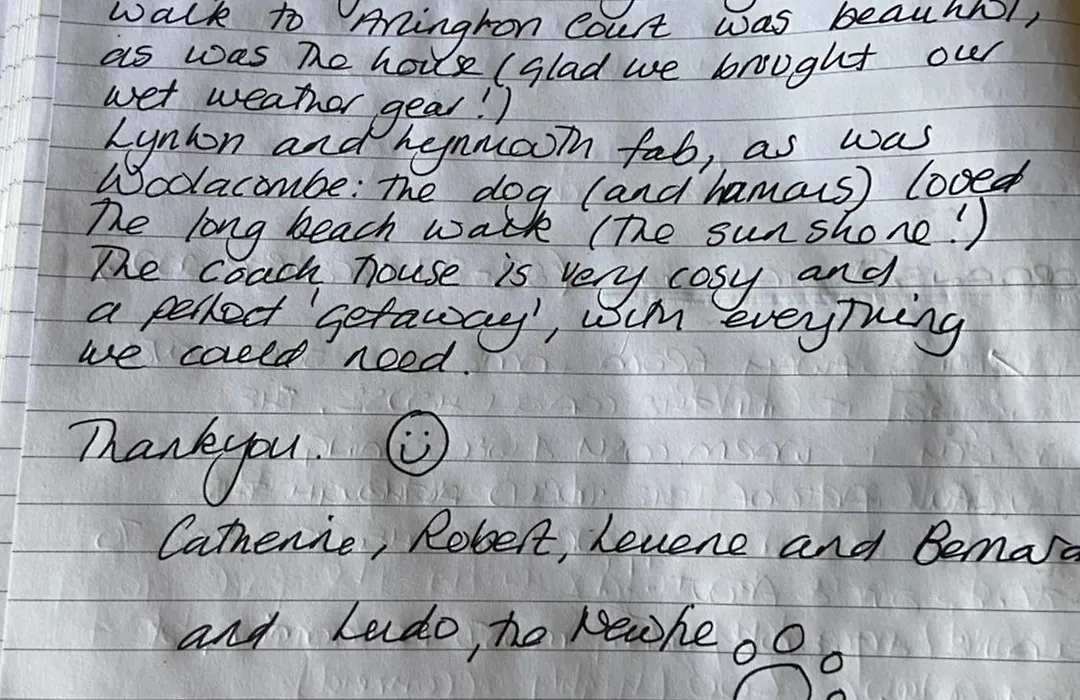 walk to Arlington Court was beautiful,
as was the house (glad we brought our
wet weather gear!)
Lynton and Lynmouth fab, as was
Woolacombe: the dog (and humans) loved
the long beach walk (the sun shone!)
The Coach house is very cosy and
a perfect 'getaway', with everything
we could need.
Thankyou.
Catherine, Robert, and Bernard
and Ludo, the Newfie